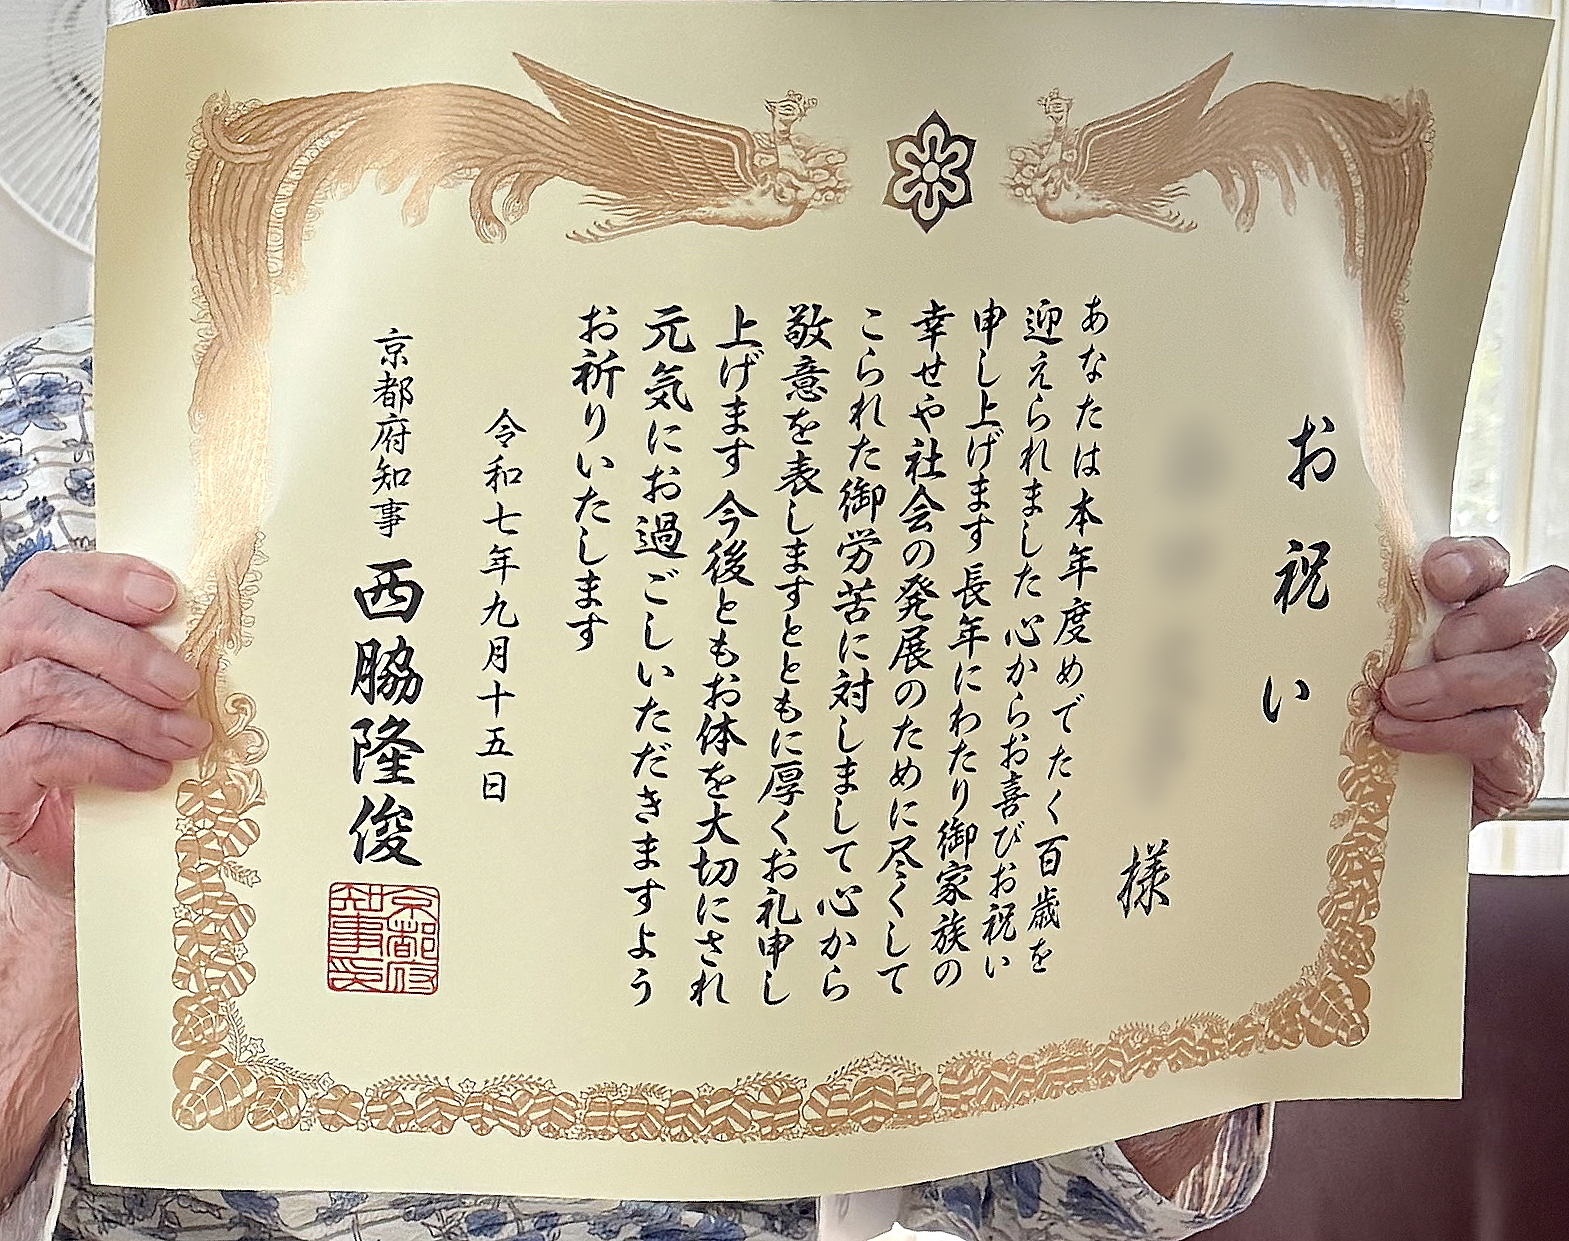 お祝い
様
あなたは本年度めでたく百歳を
迎えられました心からお喜びお祝い
申し上げます長年にわたり御家族の
幸せや社会の発展のために尽くして
こられた御労苦に対しまして心から
敬意を表しますとともに厚くお礼申し
上げます今後ともお体を大切にされ
元気にお過ごしいただきますよう
お祈りいたします
令和七年九月十五日
京都府知事 西脇隆俊
京都府
知事印